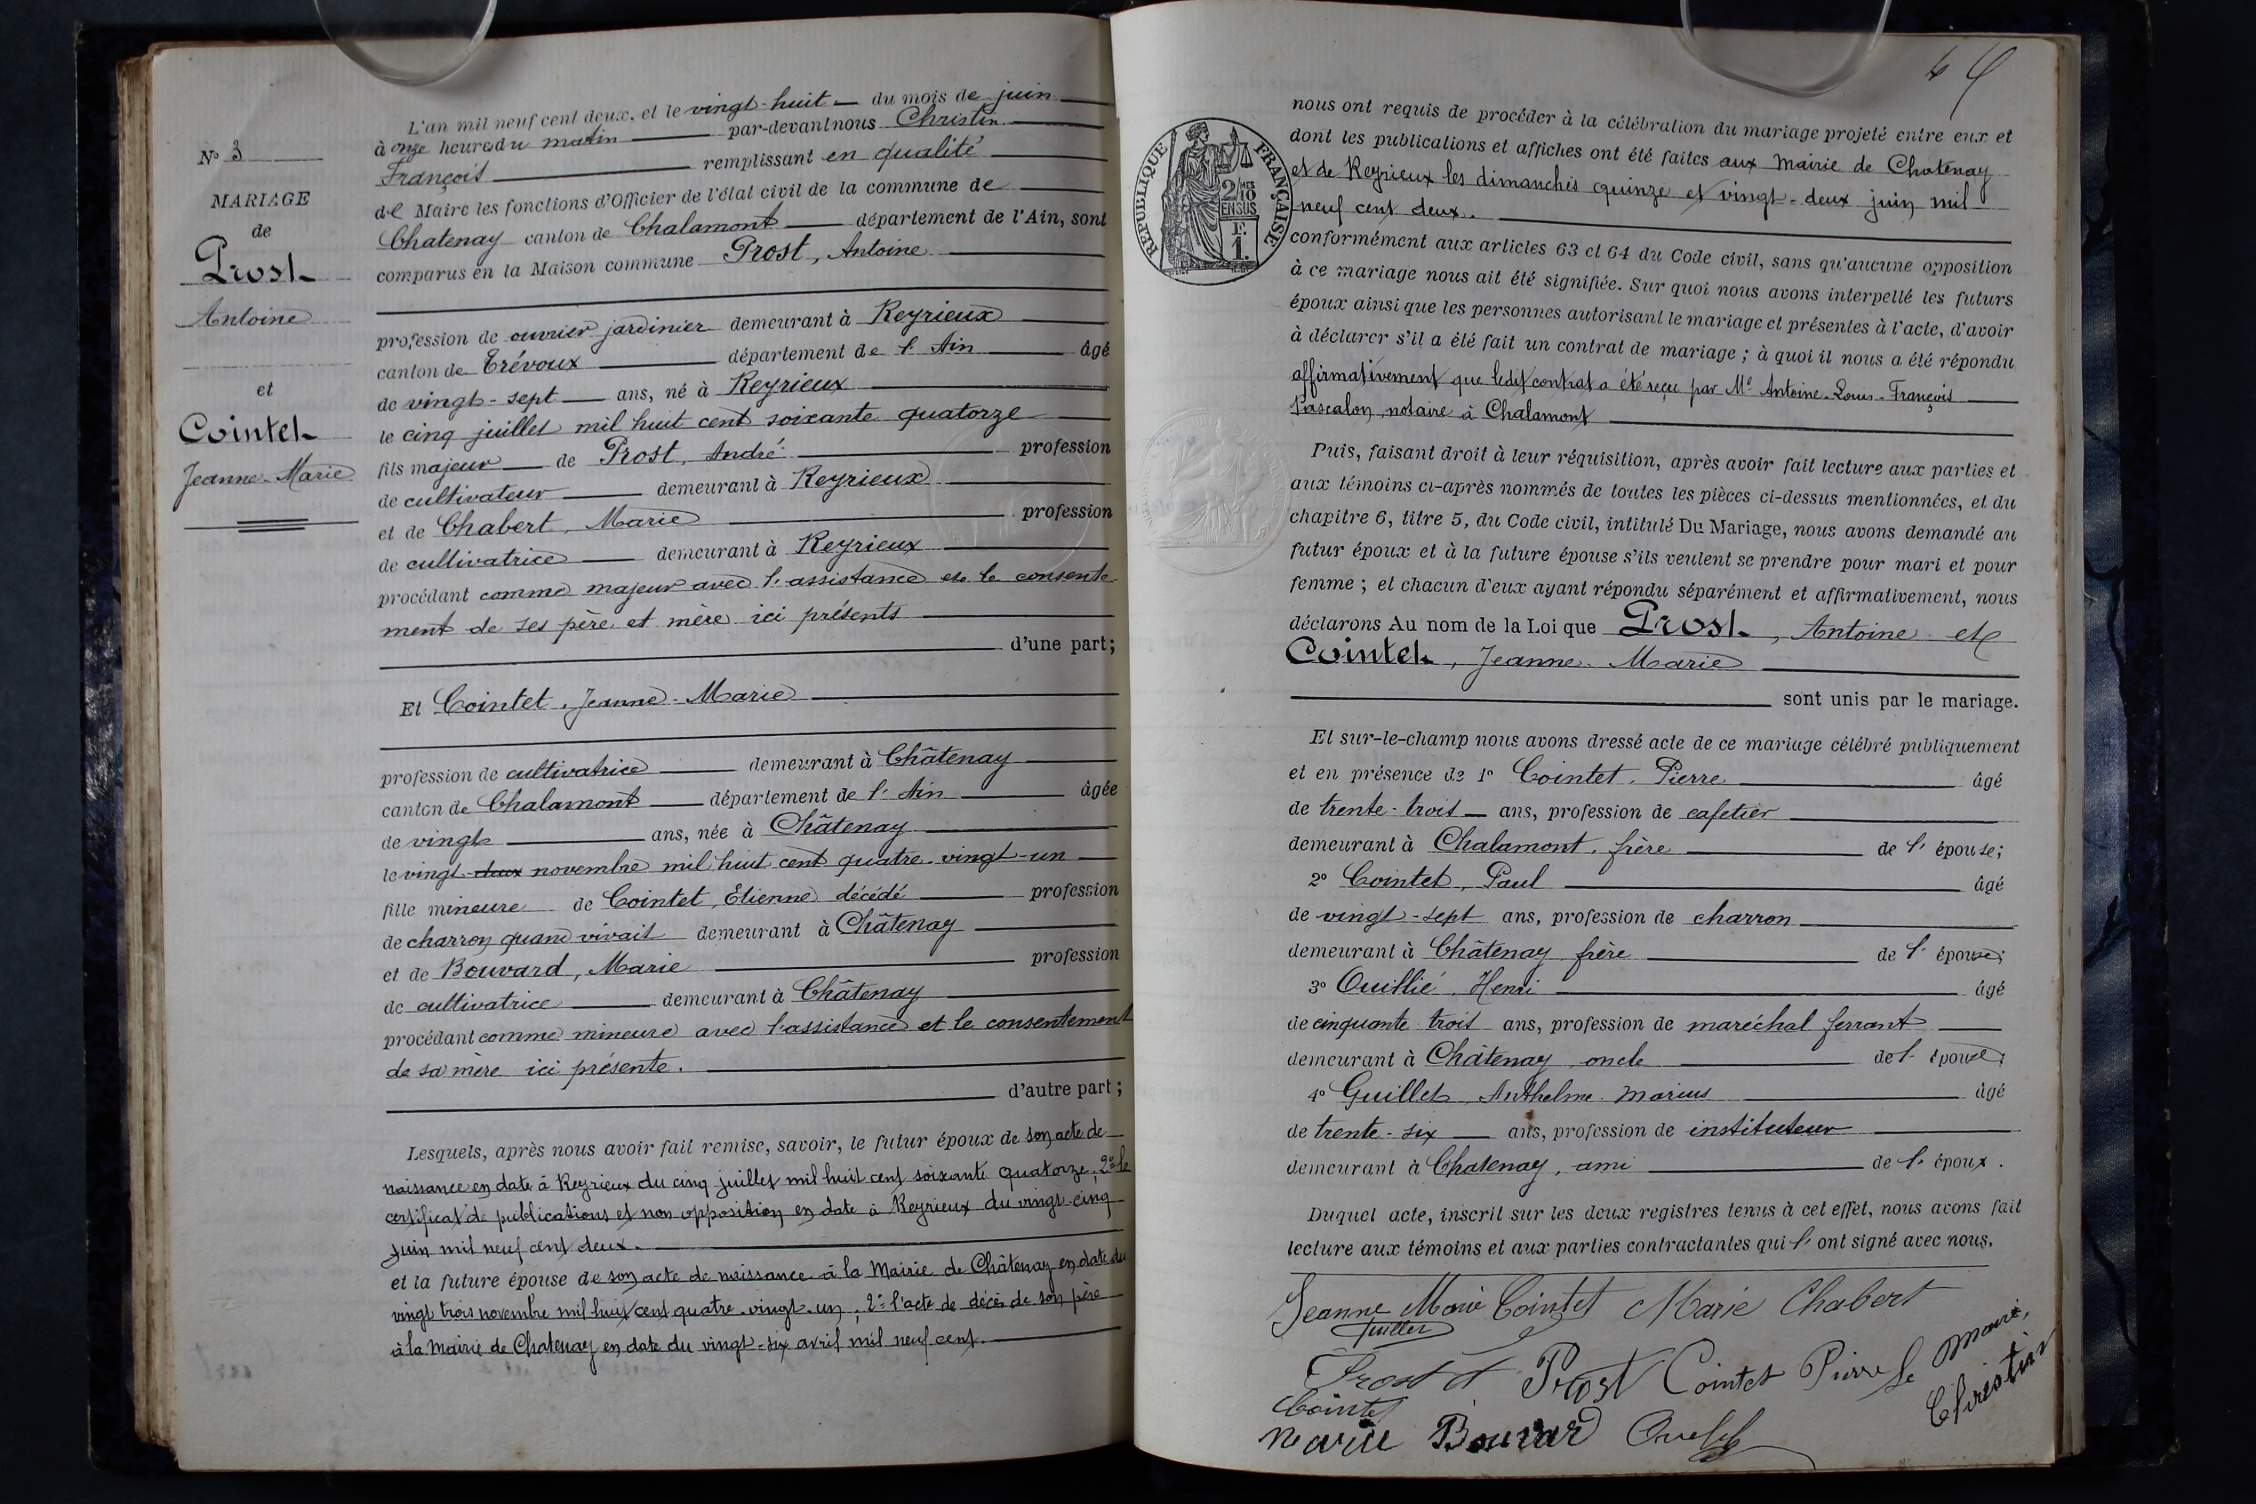 N° 3
MARIAGE
de
Prost
Antoine
et
Cointet
Jeanne-Marie
L'an mil neuf cent deux, et le vingt-huit du mois de juin
à onze heures du matin par-devant nous Christin
François remplissant en qualité
de Maire les fonctions d'Officier de l'état civil de la commune de
Chatenay canton de Chalamont département de l'Ain, sont
comparus en la Maison commune Prost, Antoine
profession de ouvrier jardinier demeurant à Reyrieux
canton de Trévoux département de l'Ain âgé
de vingt-sept ans, né à Reyrieux
le cinq juillet mil huit cent soixante quatorze
fils majeur de Prost, André profession
de cultivateur demeurant à Reyrieux
et de Chabert, Marie profession
de cultivatrice demeurant à Reyrieux
procédant comme majeur avec l'assistance et le consente-
ment de ses père et mère ici présents
d'une part;
Et Cointet, Jeanne-Marie
profession de cultivatrice demeurant à Châtenay
canton de Chalamont département de l'Ain âgée
de vingt ans, née à Châtenay
le vingt-deux novembre mil huit cent quatre-vingt-un
fille mineure de Cointet, Etienne décédé profession
de charron quand vivait demeurant à Châtenay
et de Bouvard, Marie profession
de cultivatrice demeurant à Châtenay
procédant comme mineure avec l'assistance et le consentement
de sa mère ici présente.
d'autre part;
Lesquels, après nous avoir fait remise, savoir, le futur époux de son acte de
naissance en date à Reyrieux du cinq juillet mil huit cent soixante quatorze, 2° le
certificat de publications et non opposition en date à Reyrieux du vingt-cinq
juin mil neuf cent deux.
et la future épouse de son acte de naissance à la Mairie de Châtenay en date du
vingt trois novembre mil huit cent quatre-vingt-un, 2° l'acte de décès de son père
à la Mairie de Chatenay en date du vingt-six avril mil neuf cent.
RÉPUBLIQUE FRANÇAISE
2/10 EN SUS
1 F.
nous ont requis de procéder à la célébration du mariage projeté entre eux et
dont les publications et affiches ont été faites aux Mairie de Chatenay
et de Reyrieux les dimanches quinze et vingt-deux juin mil
neuf cent deux.
conformément aux articles 63 et 64 du Code civil, sans qu'aucune opposition
à ce mariage nous ait été signifiée. Sur quoi nous avons interpellé les futurs
époux ainsi que les personnes autorisant le mariage et présentes à l'acte, d'avoir
à déclarer s'il a été fait un contrat de mariage; à quoi il nous a été répondu
affirmativement que ledit contrat a été reçu par Me Antoine-Louis-François
Pascalon, notaire à Chalamont
Puis, faisant droit à leur réquisition, après avoir fait lecture aux parties et
aux témoins ci-après nommés de toutes les pièces ci-dessus mentionnées, et du
chapitre 6, titre 5, du Code civil, intitulé Du Mariage, nous avons demandé au
futur époux et à la future épouse s'ils veulent se prendre pour mari et pour
femme; et chacun d'eux ayant répondu séparément et affirmativement, nous
déclarons Au nom de la Loi que Prost, Antoine et
Cointet, Jeanne-Marie
sont unis par le mariage.
Et sur-le-champ nous avons dressé acte de ce mariage célébré publiquement
et en présence de 1° Cointet, Pierre âgé
de trente-trois ans, profession de cafetier
demeurant à Chalamont, frère de l'épouse;
2° Cointet, Paul âgé
de vingt-sept ans, profession de charron
demeurant à Châtenay frère de l'épouse;
3° Ouillié, Henri âgé
de cinquante trois ans, profession de maréchal ferrant
demeurant à Châtenay, oncle de l'épouse;
4° Guillet, Anthelme-Marius âgé
de trente-six ans, profession de instituteur
demeurant à Chatenay, ami de l'époux.
Duquel acte, inscrit sur les deux registres tenus à cet effet, nous avons fait
lecture aux témoins et aux parties contractantes qui l'ont signé avec nous.
Jeanne Marie Cointet Marie Chabert
Prost A Prost Cointet Pierre Le Maire,
Cointet Christin
Marie Bouvard